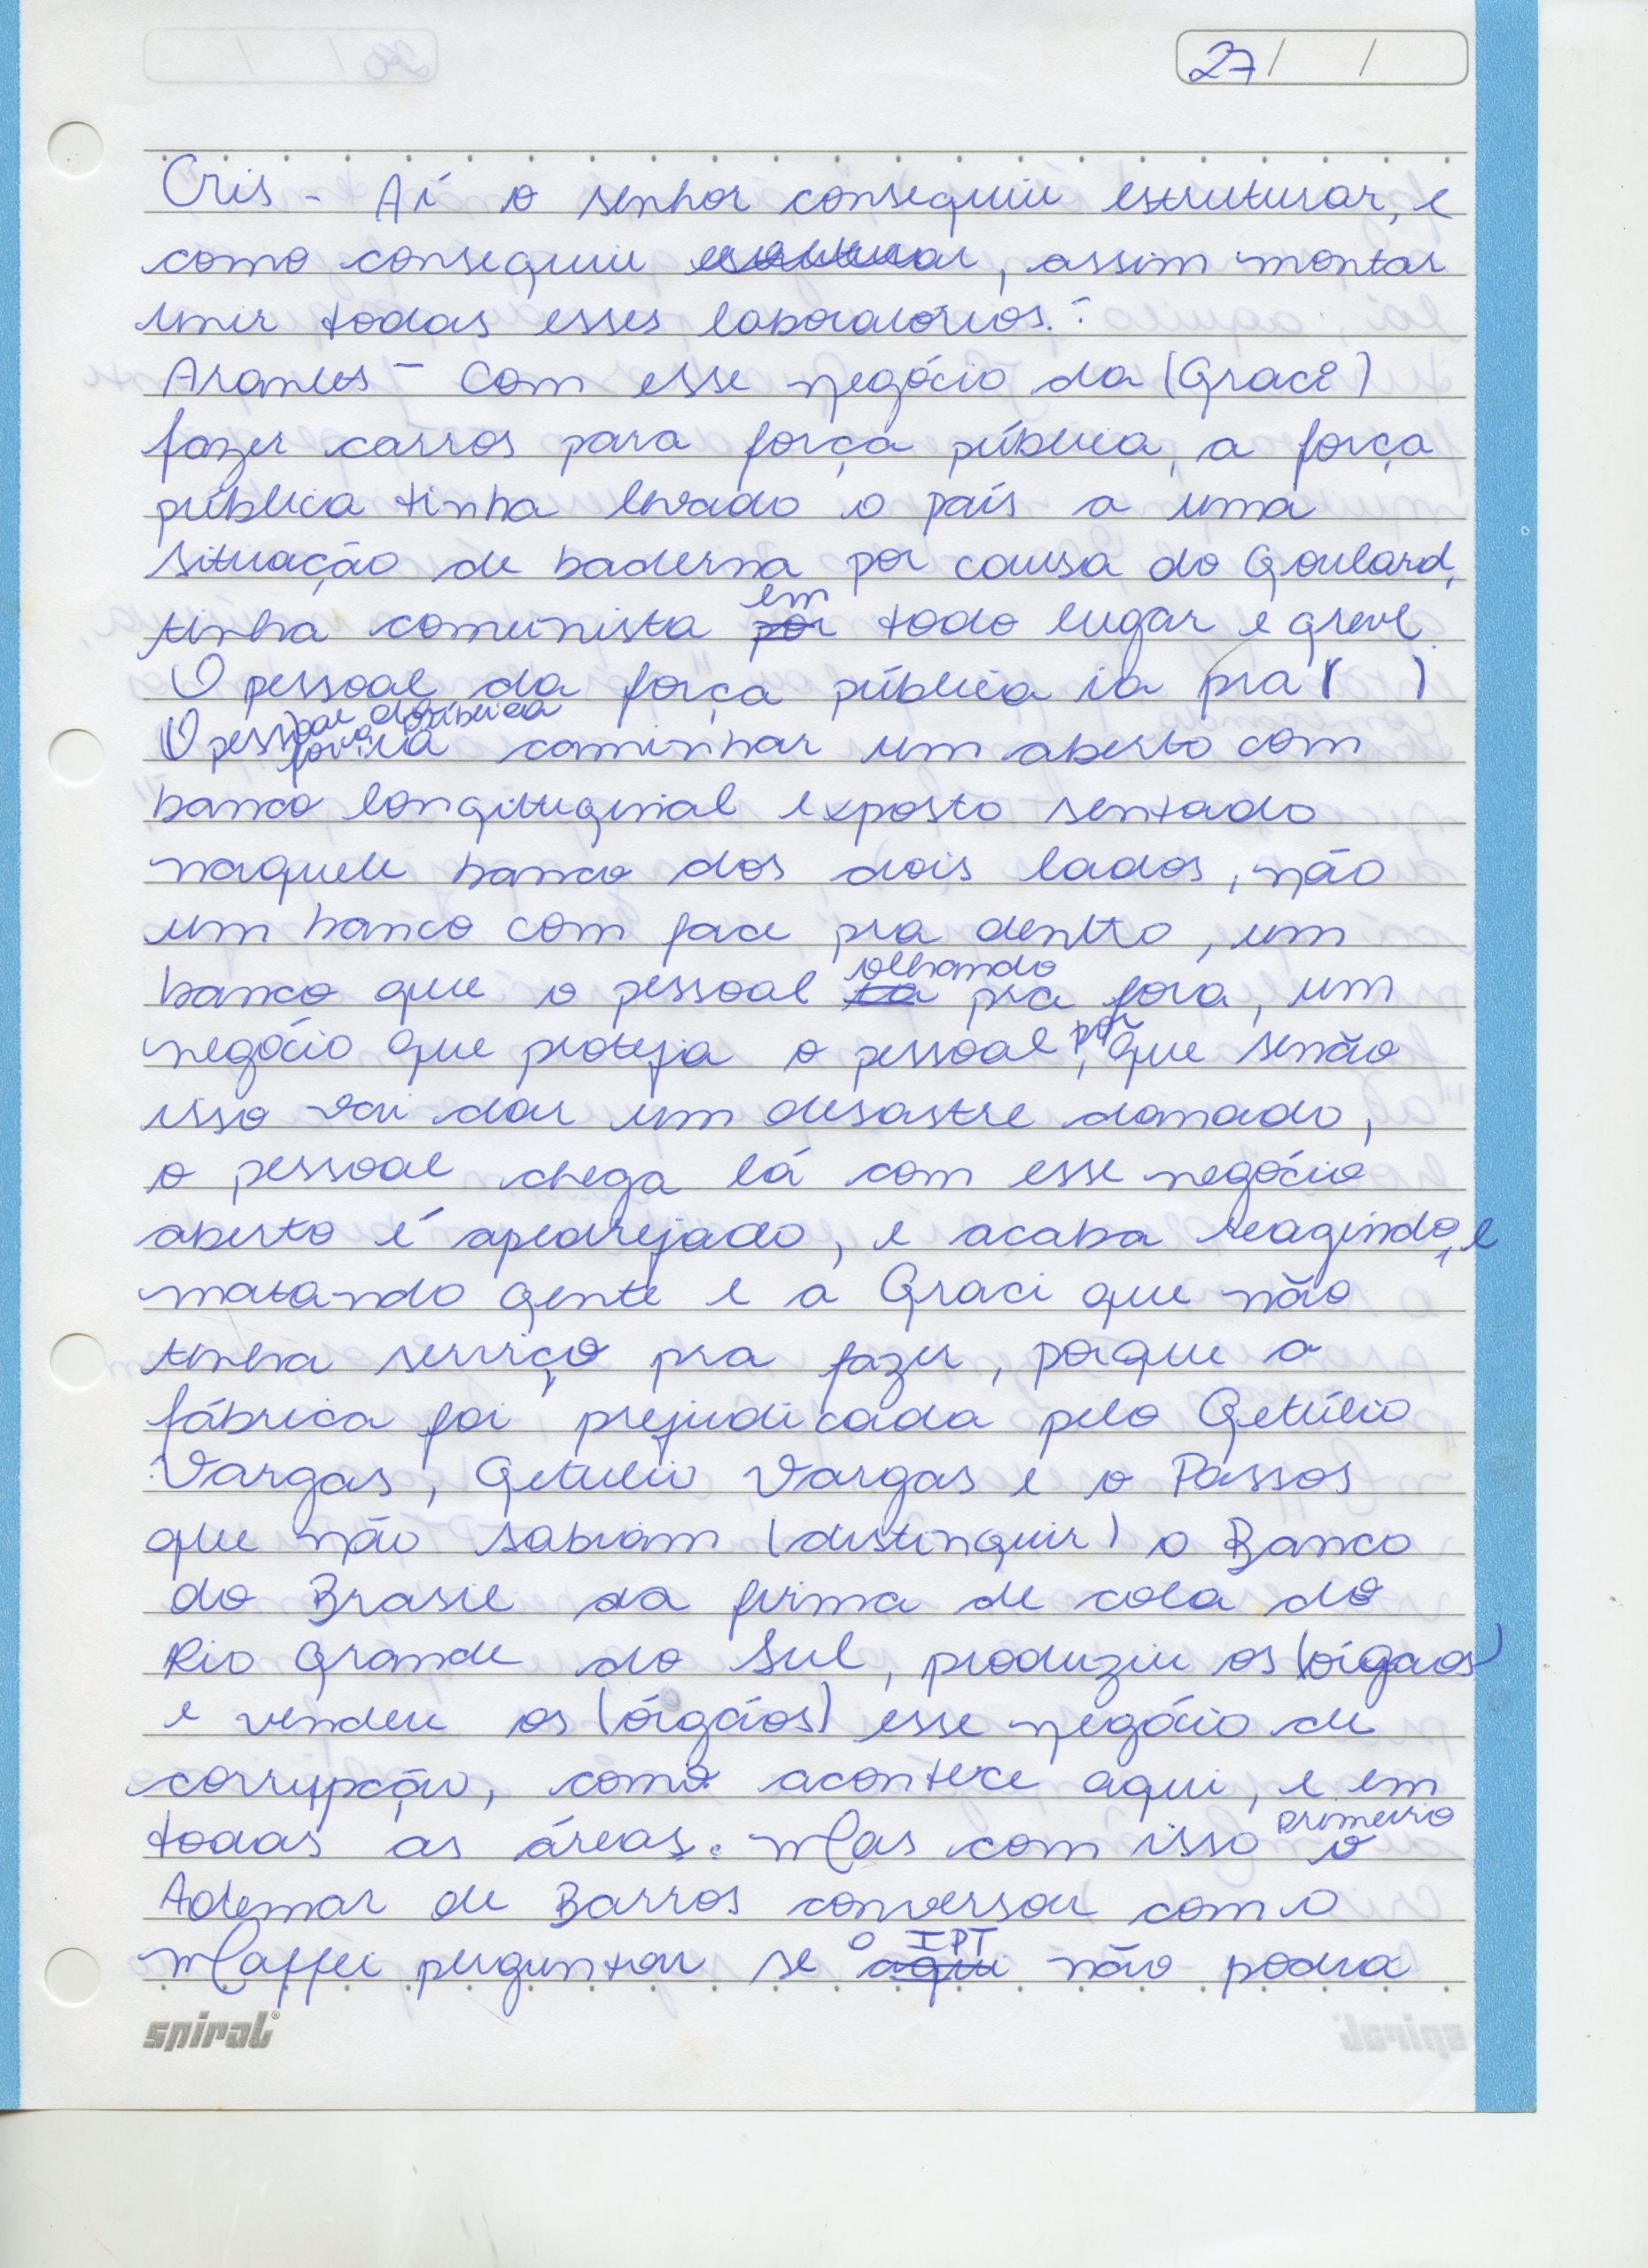 27/ /
Cris - Aí o senhor conseguiu estruturar, e
como conseguiu estruturar, assim montar
unir todas esses laboratórios.?
Arantes - Com esse negócio da (Graci)
fazer carros para força pública, a força
pública tinha levado o país a uma
situação de baderna por causa do Goulard,
em
tinha comunista por todo lugar e greve.
O pessoal da força pública ia pra ( )
O pessoal da força pública ia caminhar um aberto com
banco longituginal exposto sentado
naquele banco dos dois lados, não
um banco com face pra dentro, um
olhando
banco que o pessoal ta pra fora, um
negócio que proteja o pessoal, por que senão
isso vai dar um desastre danado,
o pessoal chega lá com esse negócio
aberto é apedrejado, e acaba reagindo, e
matando gente e a Graci que não
tinha serviço pra fazer, porque a
fábrica foi prejudicada pelo Getúlio
Vargas, Getulio Vargas e o Passos
que não sabiam (distinguir) o Banco
do Brasil da firma de cola do
Rio Grande do Sul, produziu os
e vendeu os (órgãos) esse negócio de
corrupção, como acontece aqui, e em
primeiro
todas as áreas. Mas com isso o
Ademar de Barros conversou com o
o IPT
Maffei perguntou se aqui não podia
spiral®